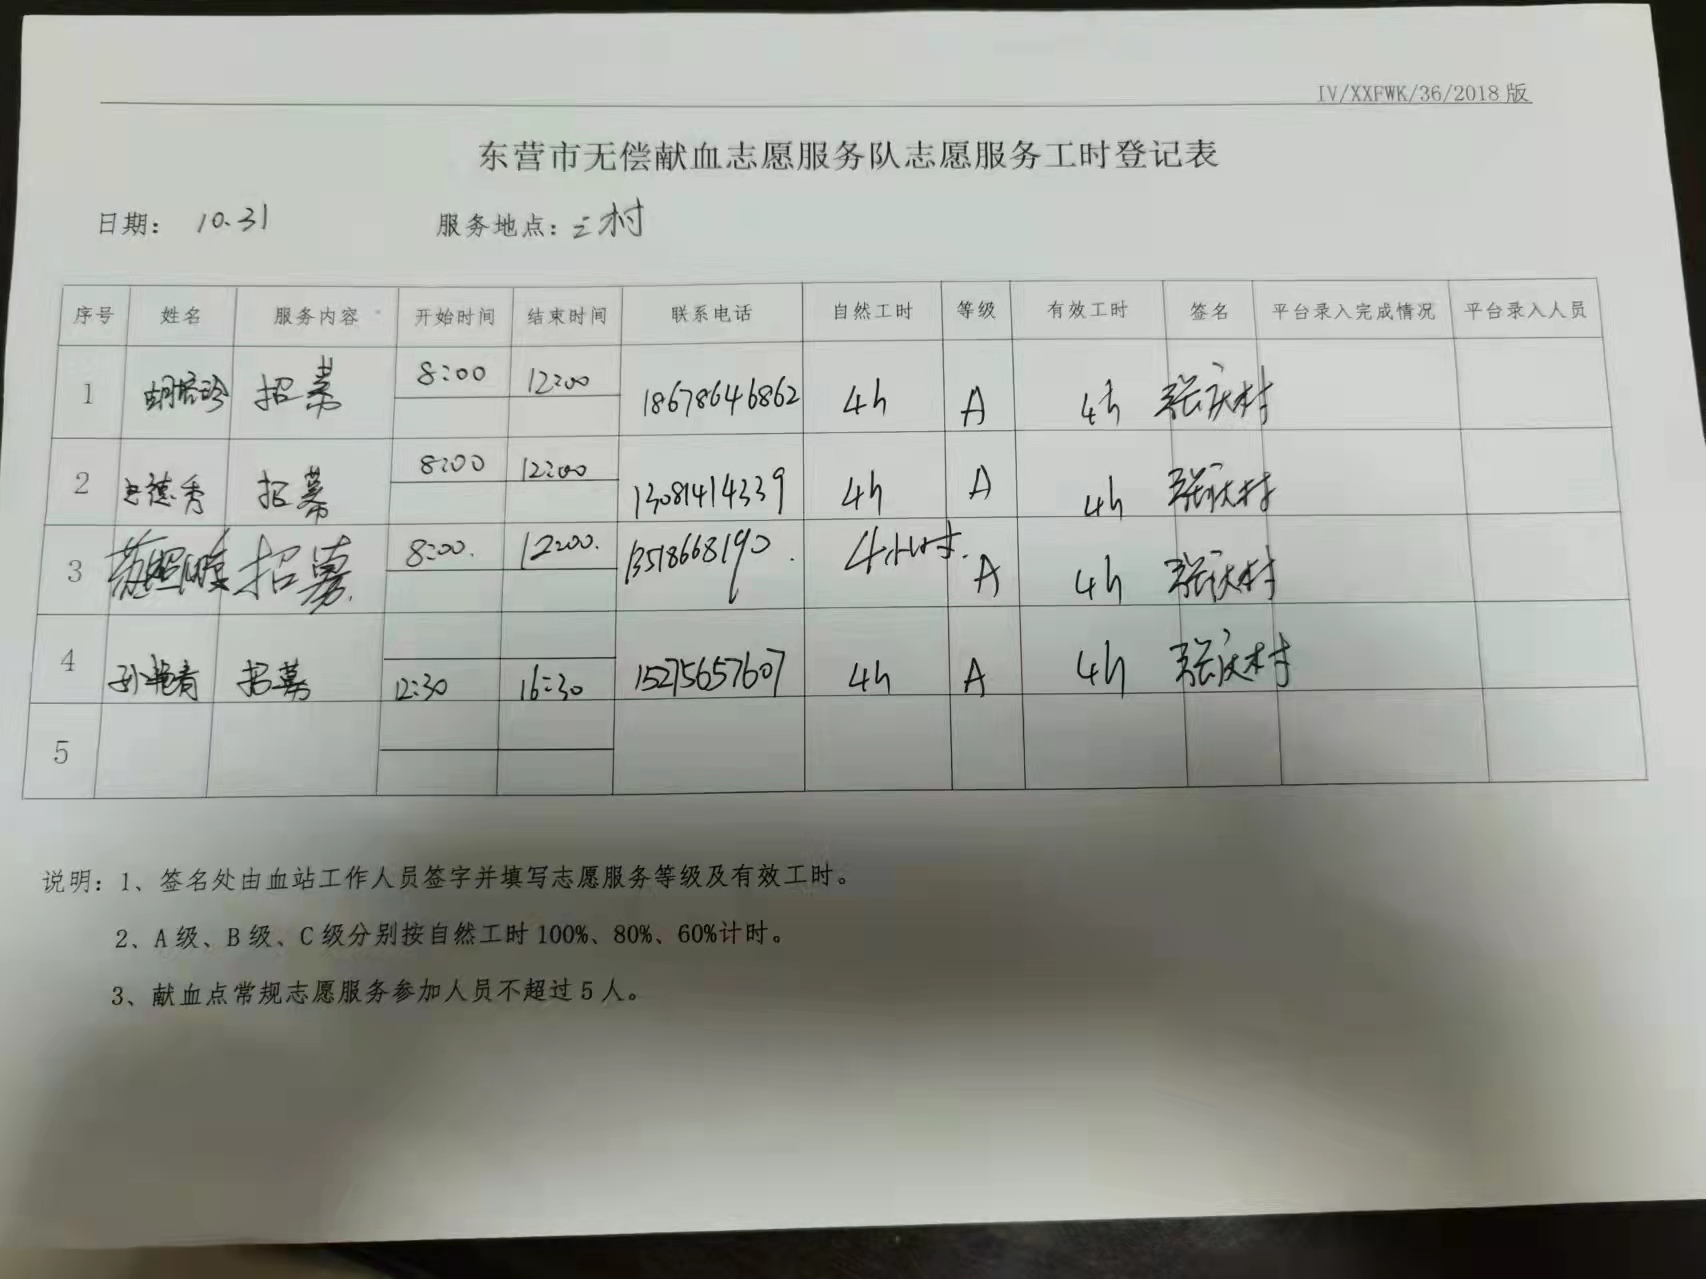 IV/XXFWK/36/2018 版
东营市无偿献血志愿服务队志愿服务工时登记表
日期： 10.31 服务地点：三村
序号 姓名 服务内容 开始时间 结束时间 联系电话 自然工时 等级 有效工时 签名 平台录入完成情况 平台录入人员
1 招募 8:00 12:00 18678646862 4h A 4h 张庆村
2 德秀 招募 8:00 12:00 13081414339 4h A 4h 张庆村
3 招募 8:00. 12:00. 13518668190. 4小时. A 4h 张庆村
4 孙艳青 招募 12:30 16:30 15275657607 4h A 4h 张庆村
5
说明：1、签名处由血站工作人员签字并填写志愿服务等级及有效工时。
2、A 级、B 级、C 级分别按自然工时 100%、80%、60%计时。
3、献血点常规志愿服务参加人员不超过 5 人。